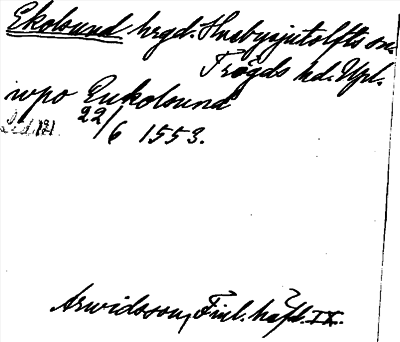 Ekolsund hrgd. Husbysjutolfts sn.
Trögds hd. Upl.
wpo Enkolsund
22/6 1553.
Arwidsson, Finl. häfd. IX.